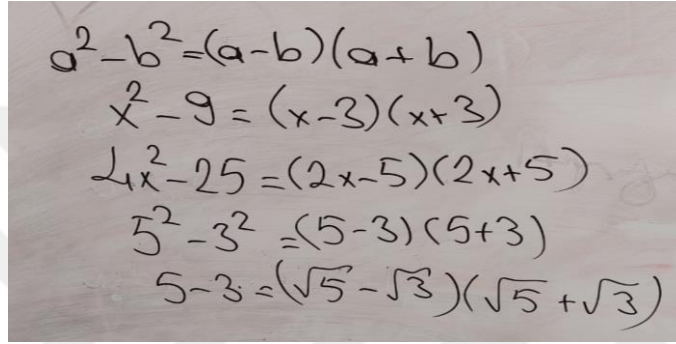 a²-b²=(a-b)(a+b)
x²-9=(x-3)(x+3)
4x²-25=(2x-5)(2x+5)
5²-3²=(5-3)(5+3)
5-3=(√5-√3)(√5+√3)